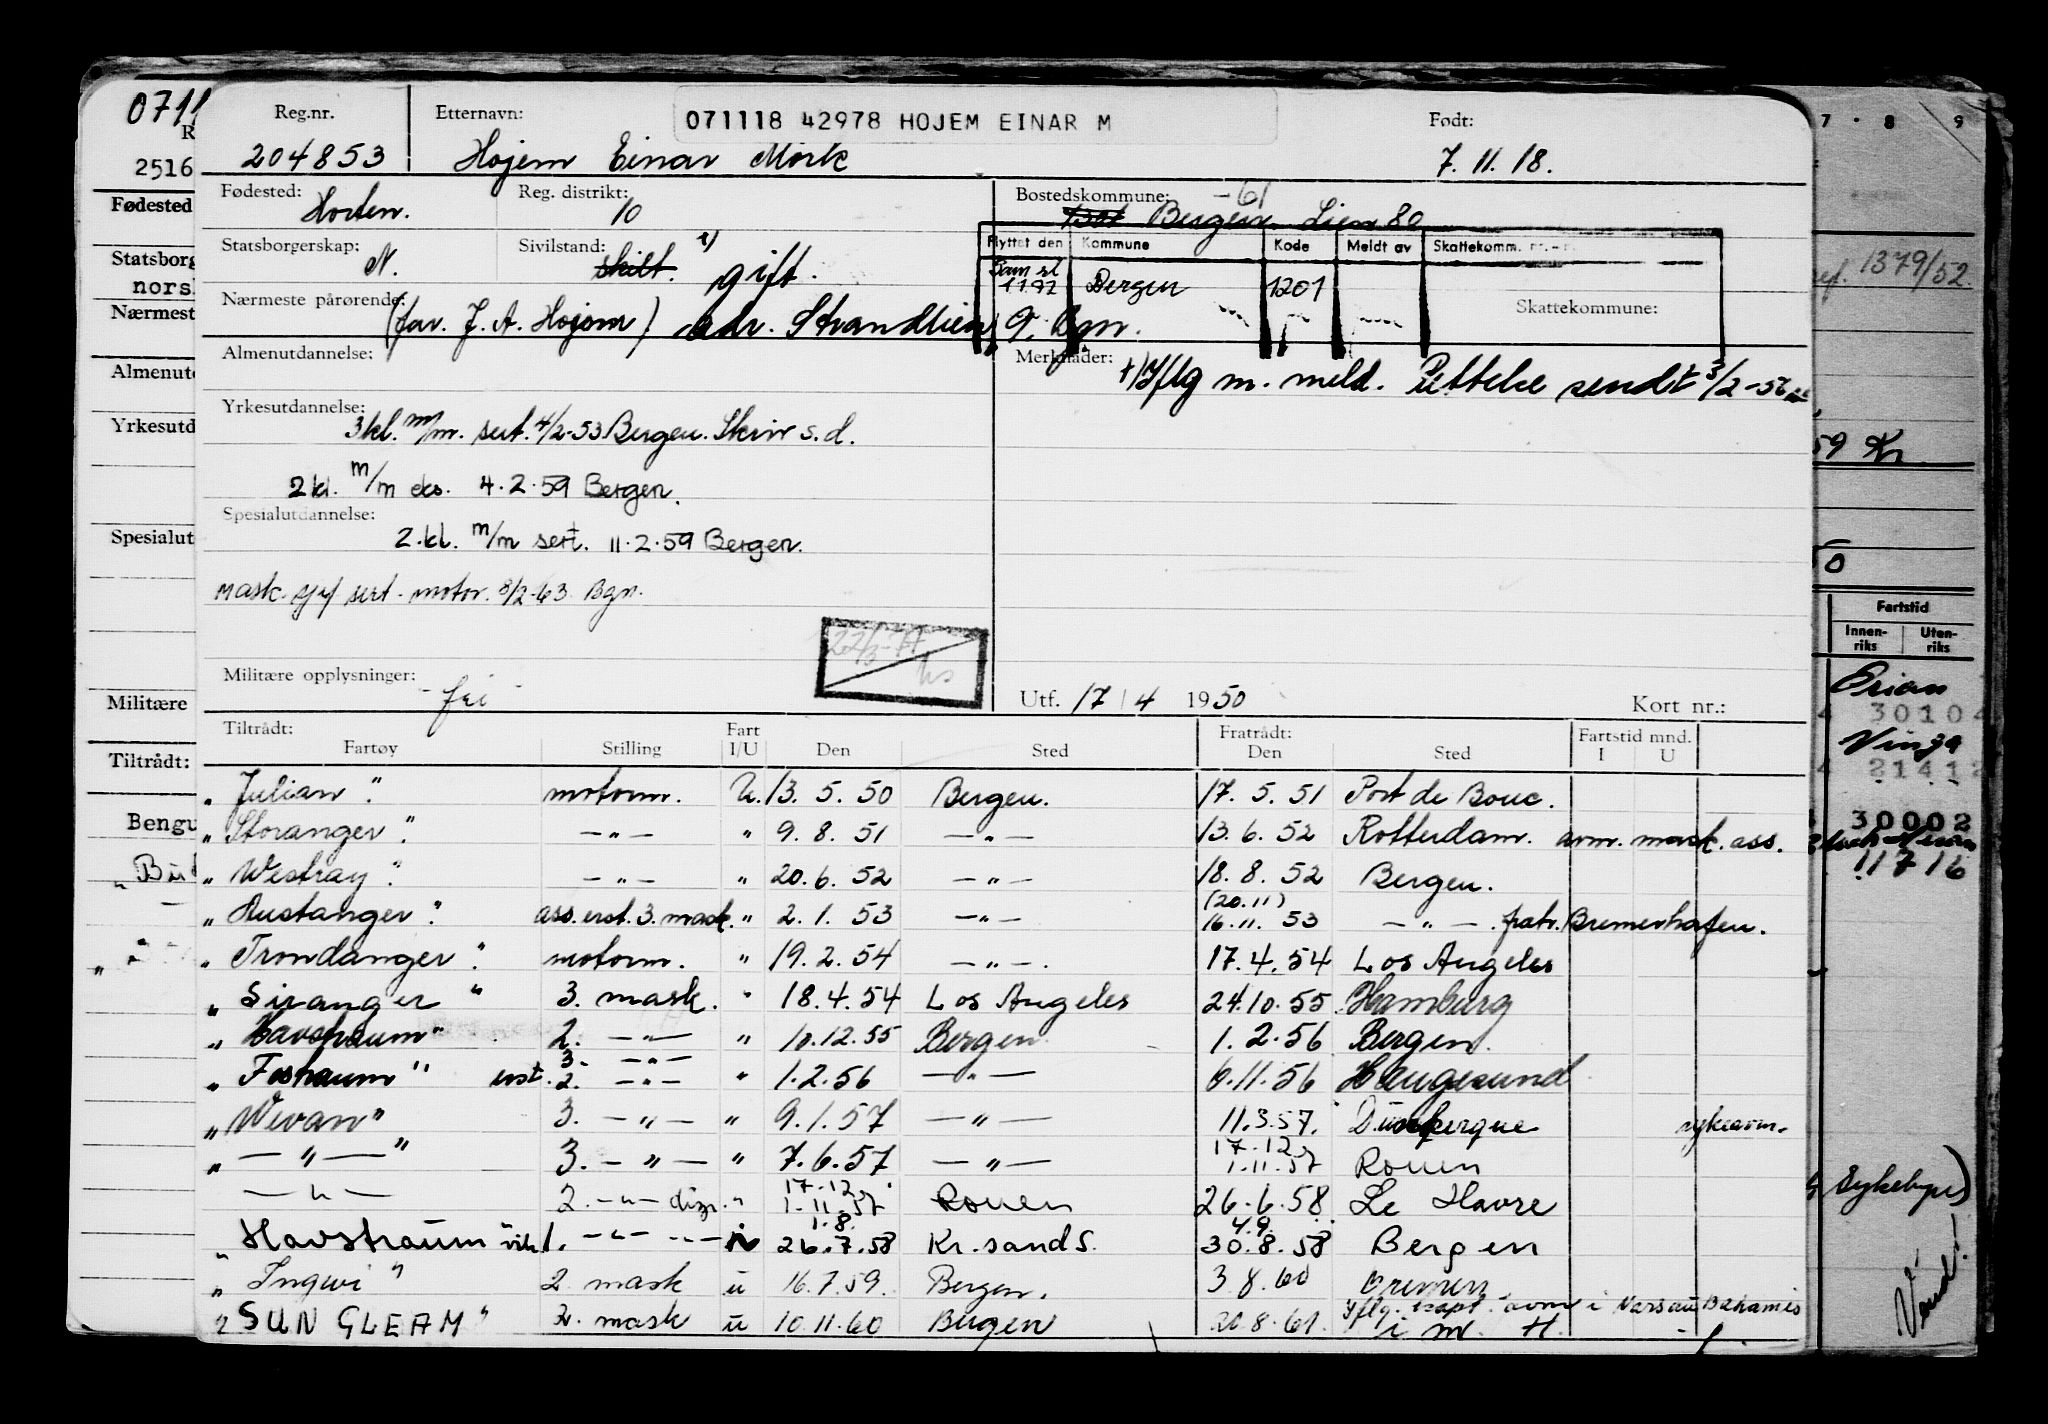 Reg.nr. Etternavn: 071118 42978 HOJEM EINAR M Født:
204853 Hojem Einar Mork 7.11.18.
Fødested: Horten. Reg. distrikt: 10 Bostedskommune: -61 Bergen Lien 80
Statsborgerskap: N. Sivilstand: skilt. gift.
Flyttet den Kommune Kode Meldt av Skattekomm.
Bergen 1201
Nærmeste pårørende: (far. J. A. Hojem) adr. Strandlien 9. Bgn. Skattekommune:
Almenutdannelse: Merknader: +) Iflg m. meld. Rettelse sendt 3/2-56
Yrkesutdannelse:
3kl. m/m. sert. 4/2-53 Bergen. Skriv s.d.
2 kl. m/m eks. 4.2.59 Bergen.
Spesialutdannelse:
2.kl. m/m sert. 11.2.59 Bergen.
mask. sert. motor. 8/2-63 Bgn.
22/3-77
Militære opplysninger: - fri - Utf. 17/4 1950 Kort nr.:
Tiltrådt: Fart Fratrådt: Fartstid mnd.
Fartøy Stilling I/U Den Sted Den Sted I U
"Julian". motorm. U. 13. 5. 50 Bergen. 17. 5. 51 Port de Bouc.
"Storanger". — " — " 9. 8. 51 — " — 13. 6. 52 Rotterdam. avm. mask. ass.
"Westray". — " — " 20. 6. 52 — " — 18. 8. 52 Bergen.
"Austanger". ass. erst. 3. mask. " 2. 1. 53 — " — (20.11) 16.11. 53 — " — . fratr. Bremerhafen.
"Trondanger". motorm. " 19. 2. 54 — " — . 17.4.54 Los Angeles
"Siranger" 3. mask. " 18.4.54 Los Angeles 24.10.55 Hamburg
"Havstraum" 2. — " — " 10.12.55 Bergen 1.2.56 Bergen.
"Fostraum" erst. 3. — " — 2. — " — " 1.2.56 — " — 6.11.56 Haugesund
"Wevan" 3. — " — " 9.1.57 — " — 11.3.57. Dunkerque sykeavm.
" — " — " 3. — " — " 7.6.57 — " — 17.12. 1.11.57 Rouen
— " — 2. — " — disp. " 17.12. 1.11.57 Rouen 26.6.58 Le Havre
"Havstraum" vik 1. — " — 1.8. 26.7.58 Kr.sand S. 4.9. 30.8.58 Bergen
"Ingwi" 2 mask u 16.7.59. Bergen. 3 8.60 Bremen
"SUN GLEAM" 2. mask u 10.11.60 Bergen 20.8.61. Iflg. rapt. avm i Nassau Bahamas
i m. H.
0711
2516
Fødested
Statsborg
norsk
Nærmest
Almenutd
Yrkesutd
Spesialut
Militære
Tiltrådt:
Bengu
7 8 9
ref. 1379/52.
59 Kr
50
Fartstid
Innen-riks Uten-riks
Orian
30104
Vinga
21412
30002
11716
Sykehus)